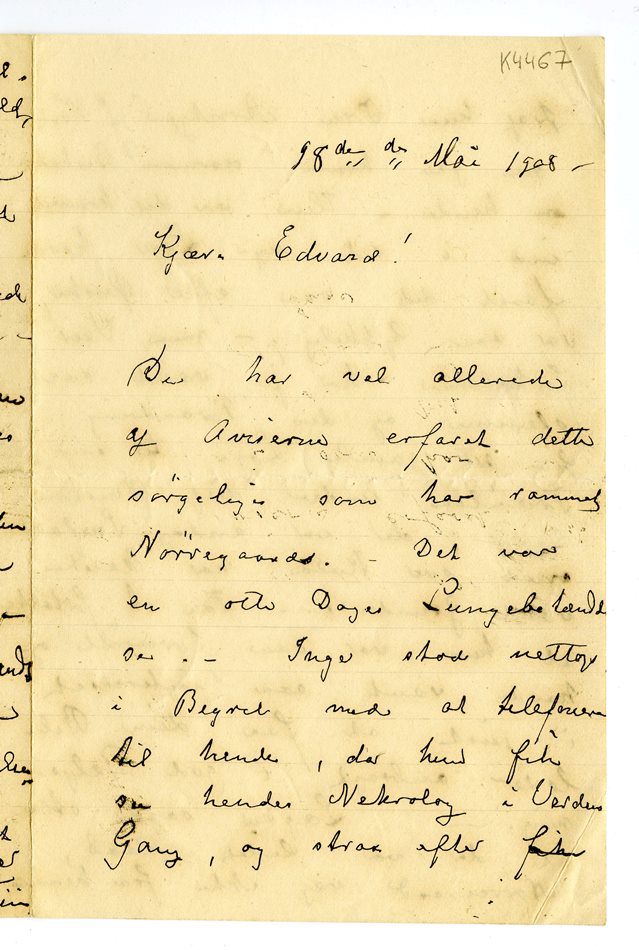 K4467
18de de Mai 1908 -
Kjære Edvard!
De har vel allerede
af Aviserne erfaret dette
sørgelige som har rammet
Nørregaards. - Det var
en otte Dages Lungebetændel
se. - Inge stod nettop
i Begreb med at telefonere
til hende, da hun fik
se hendes Nekrolog i Verdens
Gang, og strax efter fik